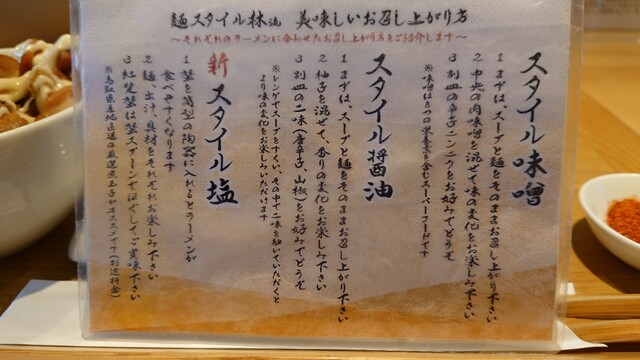 麺スタイル林流 美味しいお召し上がり方
〜それぞれのラーメンに合わせたお召し上がり方をご紹介します〜
スタイル味噌
1 まずは、スープと麺をそのままお召し上がり下さい
2 中央の肉味噌を混ぜて味の変化をお楽しみ下さい
3 別皿の辛子ニンニクをお好みでどうぞ
※味噌は8つの栄養素を含むスーパーフードです
スタイル醤油
1 まずは、スープと麺をそのままお召し上がり下さい
2 柚子を混ぜて、香りの変化をお楽しみ下さい
3 別皿の二味(唐辛子、山椒)をお好みでどうぞ
※レンゲでスープをすくい、その中で二味を効いていただくと
より味の変化をお楽しみいただけます
新スタイル塩
1 蟹を筒型の陶器に入れるとラーメンが
食べやすくなります
2 麺、出汁、具材をそれぞれお楽しみ下さい
3 紅ずわい蟹は蟹スプーンでほぐしてご賞味下さい
※鳥取県産地直送の厳選煮玉子がオススメです(別途料金)